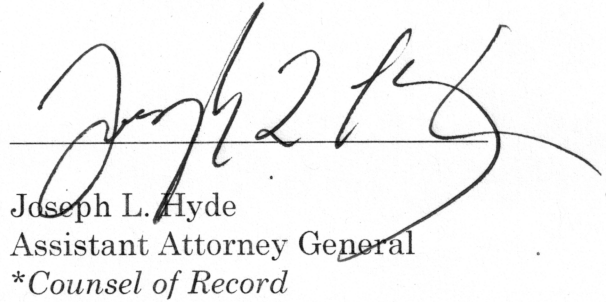 Joseph L. Hyde
Joseph L. Hyde
Assistant Attorney General
*Counsel of Record